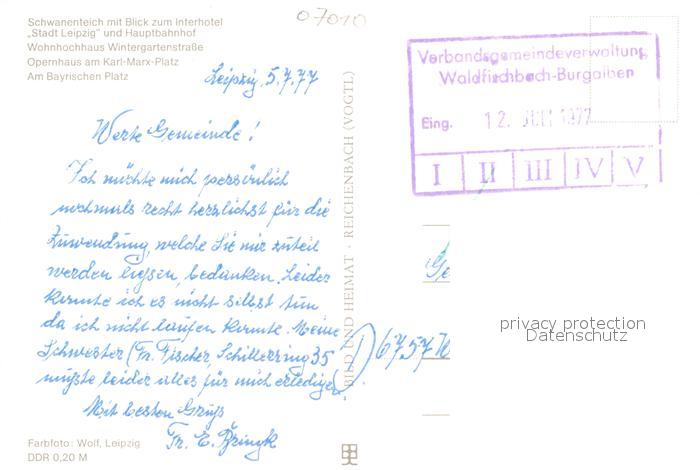 07010
Schwanenteich mit Blick zum Interhotel
„Stadt Leipzig" und Hauptbahnhof
Wohnhochhaus Wintergartenstraße
Opernhaus am Karl-Marx-Platz
Am Bayrischen Platz
Leipzig, 5.7.77
Werte Gemeinde!
Ich möchte mich persönlich
nochmals recht herzlichst für die
Zuwendung, welche Sie mir zuteil
werden liessen, bedanken. Leider
konnte ich es nicht selbst tun
da ich nicht laufen konnte. Meine
Schwester (Fr. Fischer, Schillerring 35
mußte leider alles für mich erledigen.
Mit besten Gruß
Fr. E.
Farbfoto: Wolf, Leipzig
DDR 0,20 M
BILD UND HEIMAT · REICHENBACH (VOGTL)
Verbandsgemeindeverwaltung
Waldfischbach-Burgalben
Eing. 12. JULI 1977
I II III IV V
Ge
6757
privacy protection
Datenschutz